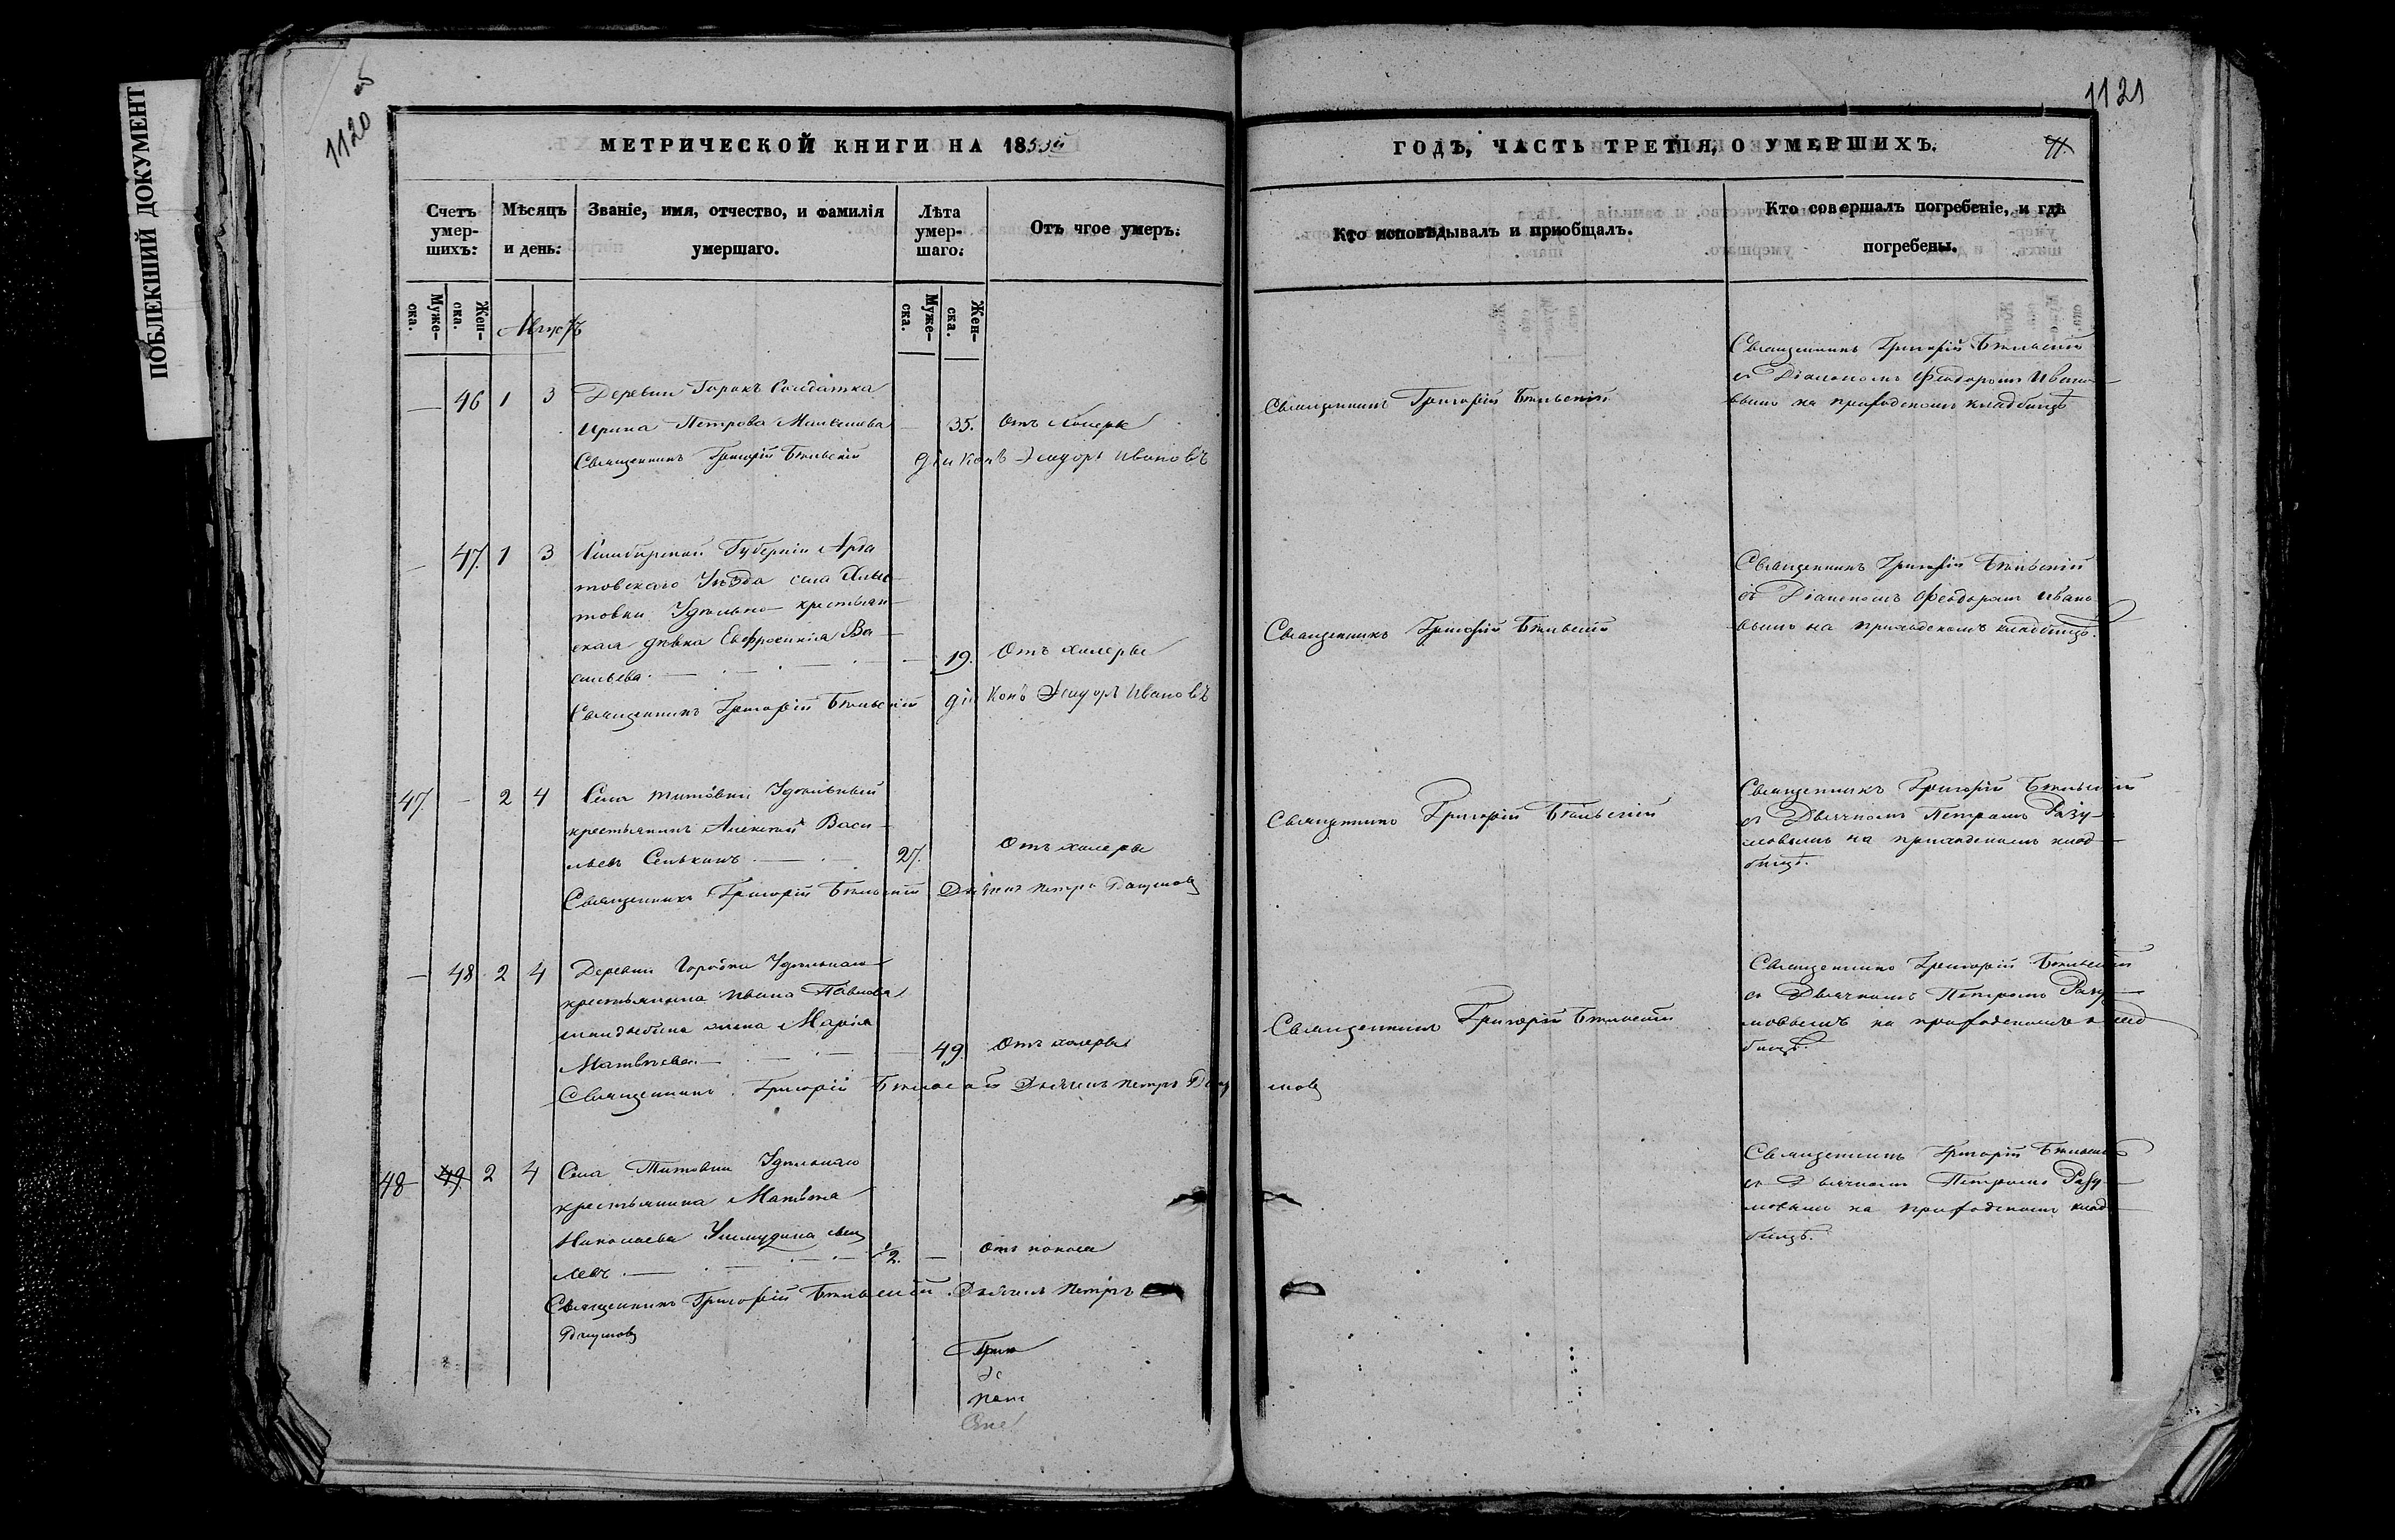 ПОБЛЕКШИЙ ДОКУМЕНТ
1120 об
МЕТРИЧЕСКОЙ КНИГИ НА 1853й
Счетъ умер-шихъ:
Мѣсяцъ и день:
Званіе, имя, отчество, и фамилія умершаго.
Лѣта умер-шаго:
Отъ чгое умеръ:
Муже-ска.
Жен-ска.
Муже-ска.
Жен-ска.
Августъ
— 46 1 3 Деревни Горокъ Солдатка
Ирина Петрова — 35. Отъ холеры
Священникъ Григорій Бѣльскій діаконъ Ѳедоръ Ивановъ
— 47. 1 3 Симбирской Губерніи Арда
товскаго Уѣзда села
товки Удѣльно-крестьян-
ская дѣвка Евфросинія Ва-
сильева. — 19. Отъ холеры
Священникъ Григорій Бѣльскій діаконъ Ѳедоръ Ивановъ
47. — 2 4 Села Титовки Удѣльный
крестьянинъ Алексей Васи-
льевъ Сенькинъ — 27. Отъ холеры
Священникъ Григорій Бѣльскій Дьячекъ Петръ Разумовъ
— 48 2 4 Деревни Удѣльнаго
крестьянина Ивана Павлова
жена Марія
Матвѣева — 49. Отъ холеры
Священникъ Григорій Бѣльскій Дьячекъ Петръ Разумовъ
48 — 49. 2 4 Села Титовки Удѣльнаго
крестьянина Матвѣя
Николаева сынъ
— 1/2. — Отъ поноса
Священникъ Григорій Бѣльскій Дьячекъ Петръ
Разумовъ
1121
ГОДЪ, ЧАСТЬ ТРЕТІЯ, О УМЕРШИХЪ.
Кто исповѣдывалъ и приобщалъ.
Кто совершалъ погребеніе, и гдѣ погребены.
Священникъ Григорій Бѣльскій
Священникъ Григорій Бѣльскій
съ Діакономъ Феодоромъ Ивано-
вымъ на приходскомъ кладбищѣ
Священникъ Григорій Бѣльскій
Священникъ Григорій Бѣльскій
съ Діакономъ Феодоромъ Ивано
вымъ на приходскомъ кладбищѣ.
Священникъ Григорій Бѣльскій
Священникъ Григорій Бѣльскій
съ Дьячкомъ Петромъ Разу-
мовымъ на приходскомъ клад-
бищѣ.
Священникъ Григорій Бѣльскій
Священникъ Григорій Бѣльскій
съ Дьячкомъ Петромъ Разу-
мовымъ на приходскомъ клад
бищѣ.
Священникъ Григорій Бѣльскій
съ Дьячкомъ Петромъ Разу-
мовымъ на приходскомъ клад-
бищѣ.